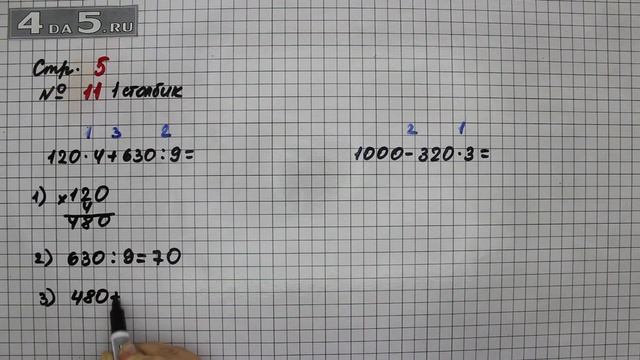 4DA5.RU
Стр. 5
№ 11 1 столбик
1 3 2
120·4+630:9=
1) ×120
4
480
2) 630:9=70
3) 480+
2 1
1000-320·3=